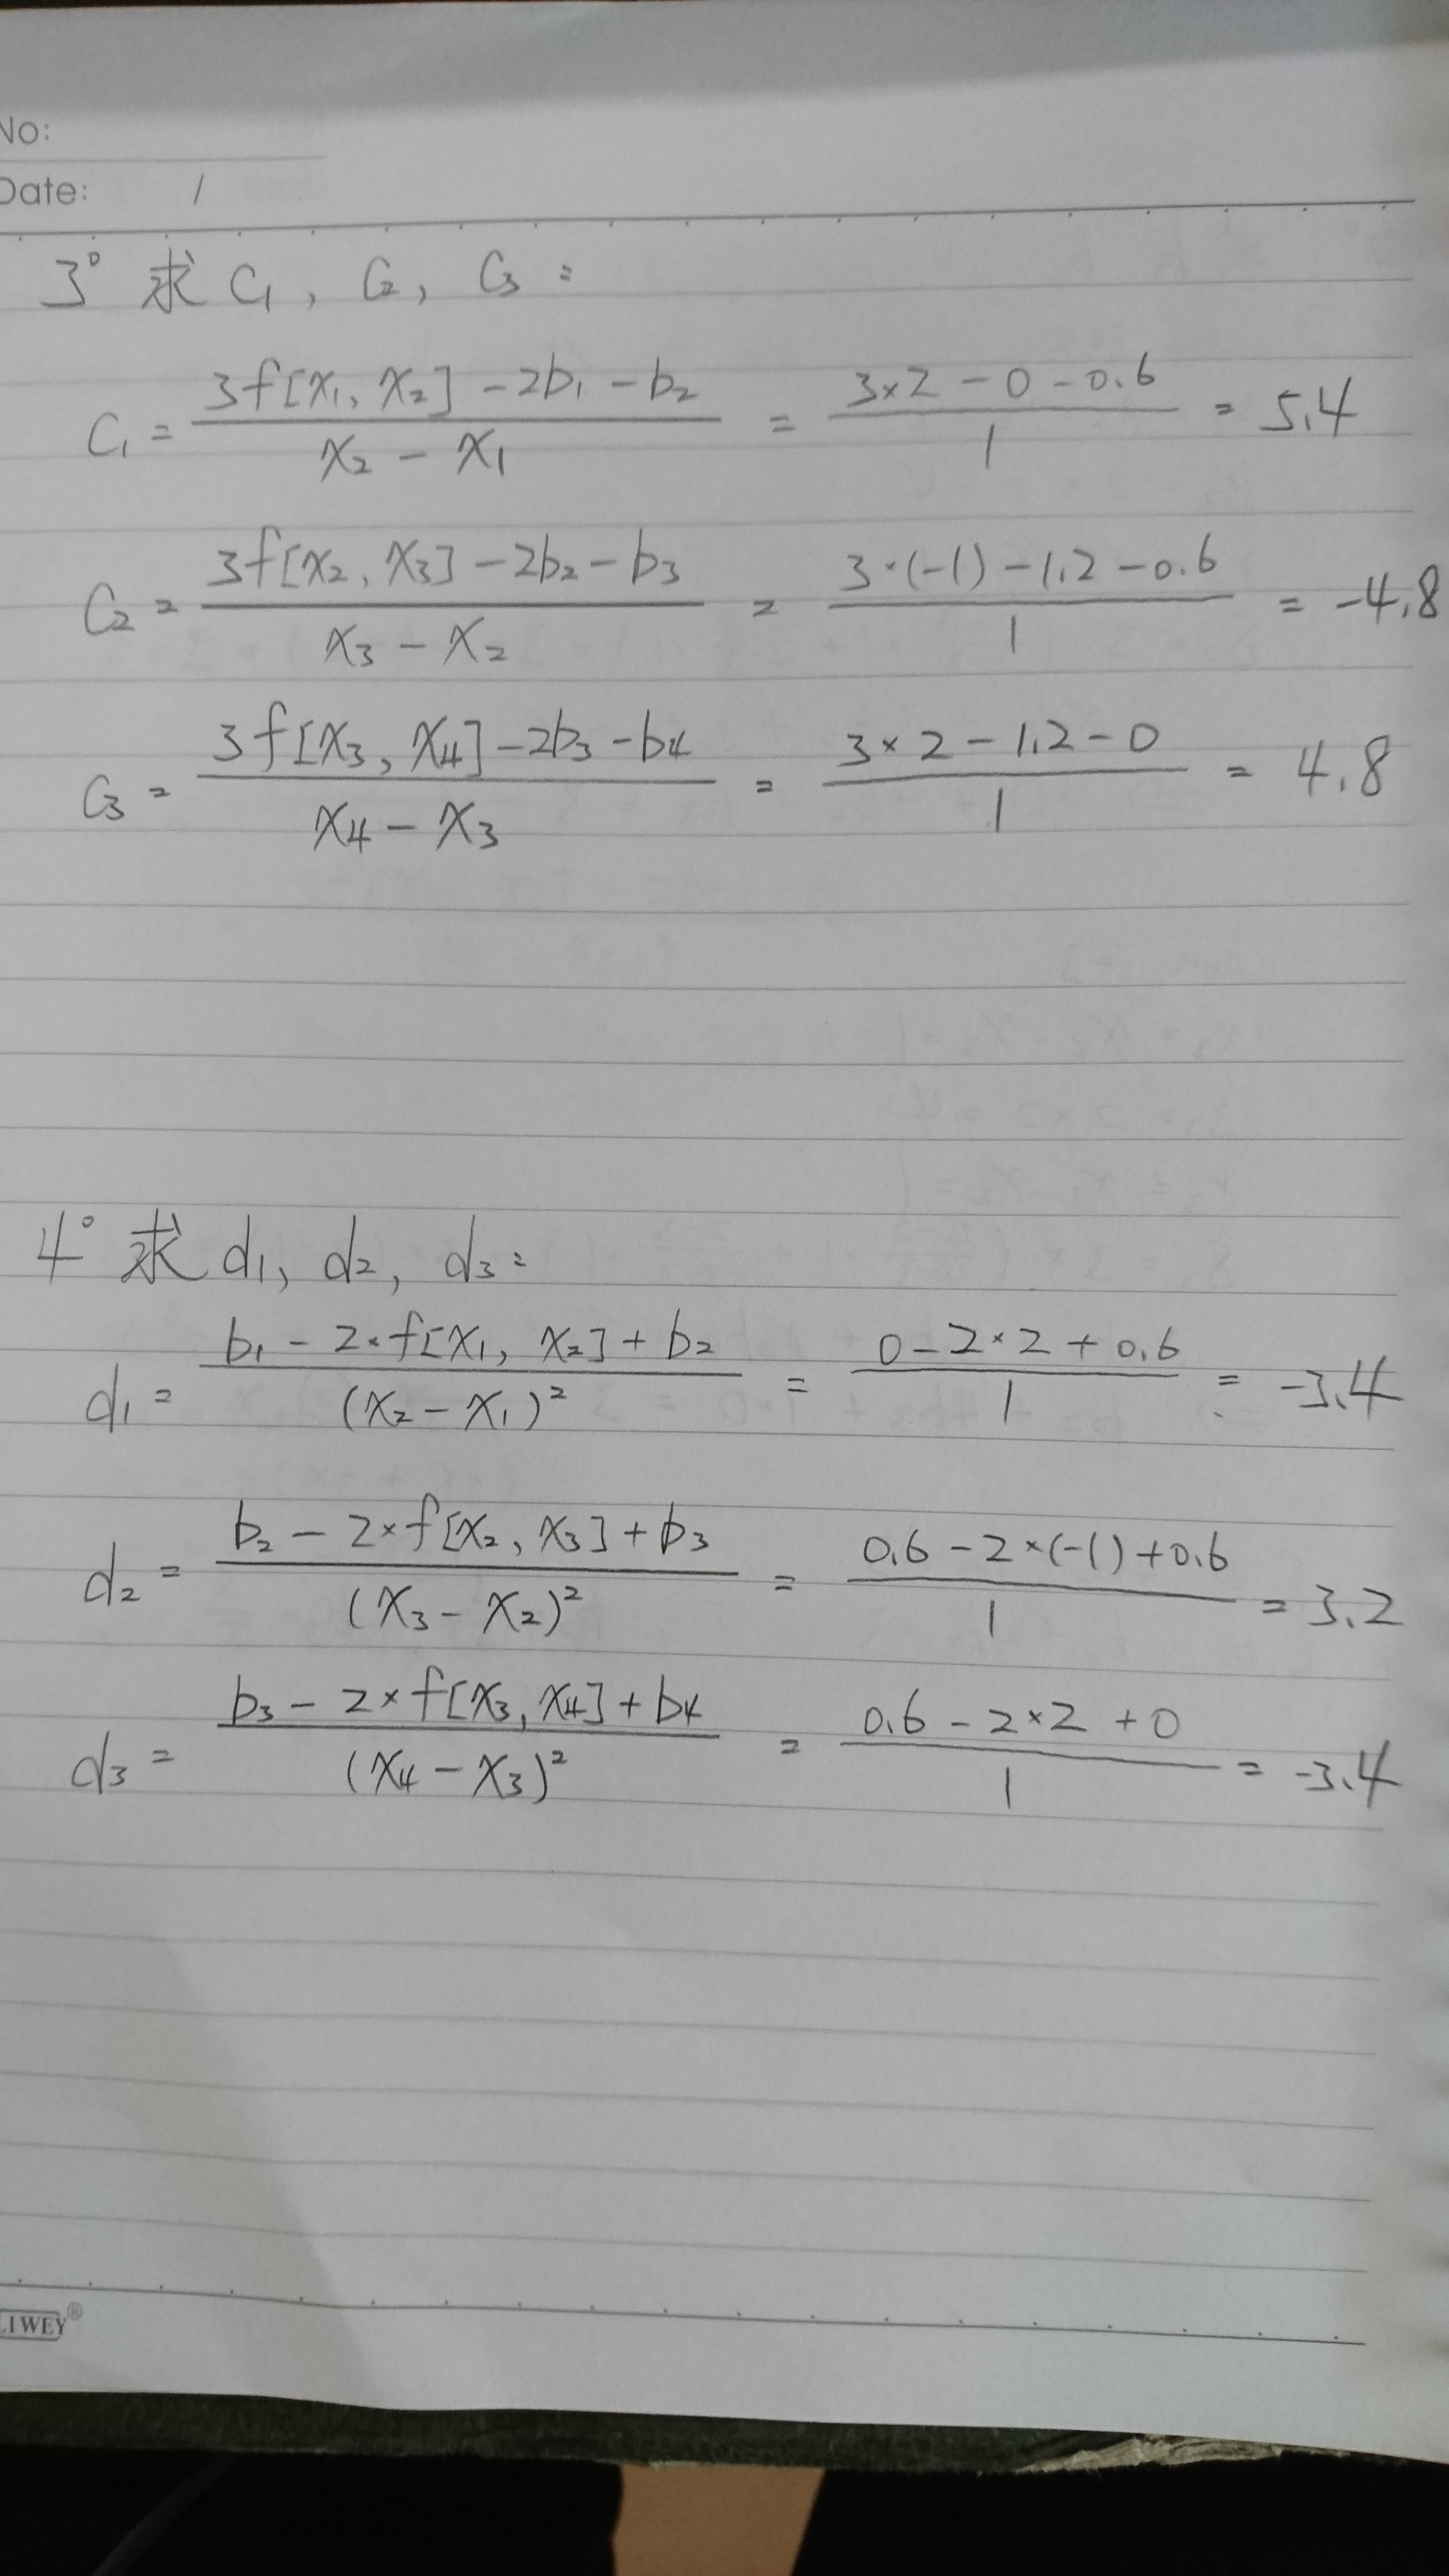 No:
Date: /
3° 求 C₁, C₂, C₃ =
C₁ = (3f[x₁, x₂] - 2b₁ - b₂) / (x₂ - x₁) = (3×2 - 0 - 0.6) / 1 = 5.4
C₂ = (3f[x₂, x₃] - 2b₂ - b₃) / (x₃ - x₂) = (3·(-1) - 1.2 - 0.6) / 1 = -4.8
C₃ = (3f[x₃, x₄] - 2b₃ - b₄) / (x₄ - x₃) = (3×2 - 1.2 - 0) / 1 = 4.8
4° 求 d₁, d₂, d₃ =
d₁ = (b₁ - 2·f[x₁, x₂] + b₂) / (x₂ - x₁)² = (0 - 2×2 + 0.6) / 1 = -3.4
d₂ = (b₂ - 2×f[x₂, x₃] + b₃) / (x₃ - x₂)² = (0.6 - 2×(-1) + 0.6) / 1 = 3.2
d₃ = (b₃ - 2×f[x₃, x₄] + b₄) / (x₄ - x₃)² = (0.6 - 2×2 + 0) / 1 = -3.4
LIWEY®